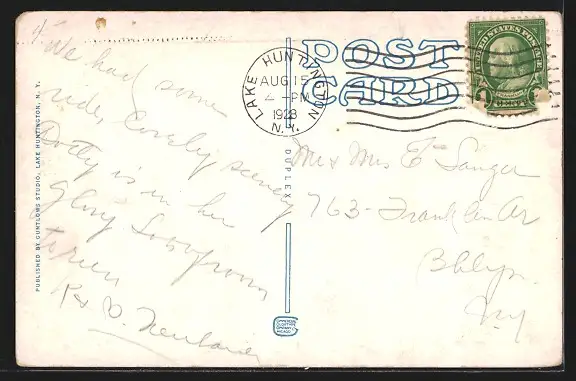 We had some
ride, Lovely scenery
Dotty is in her
glory
R & D.
PUBLISHED BY GUNTLOWS STUDIO, LAKE HUNTINGTON, N. Y.
DUPLEX
POST
CARD
LAKE HUNTINGTON
AUG 15
4 - PM
1928
N.Y.
UNITED STATES POSTAGE
1 CENT 1
Mr & Mrs E Sanger
763 - Franklin Av
Bklyn.
NY